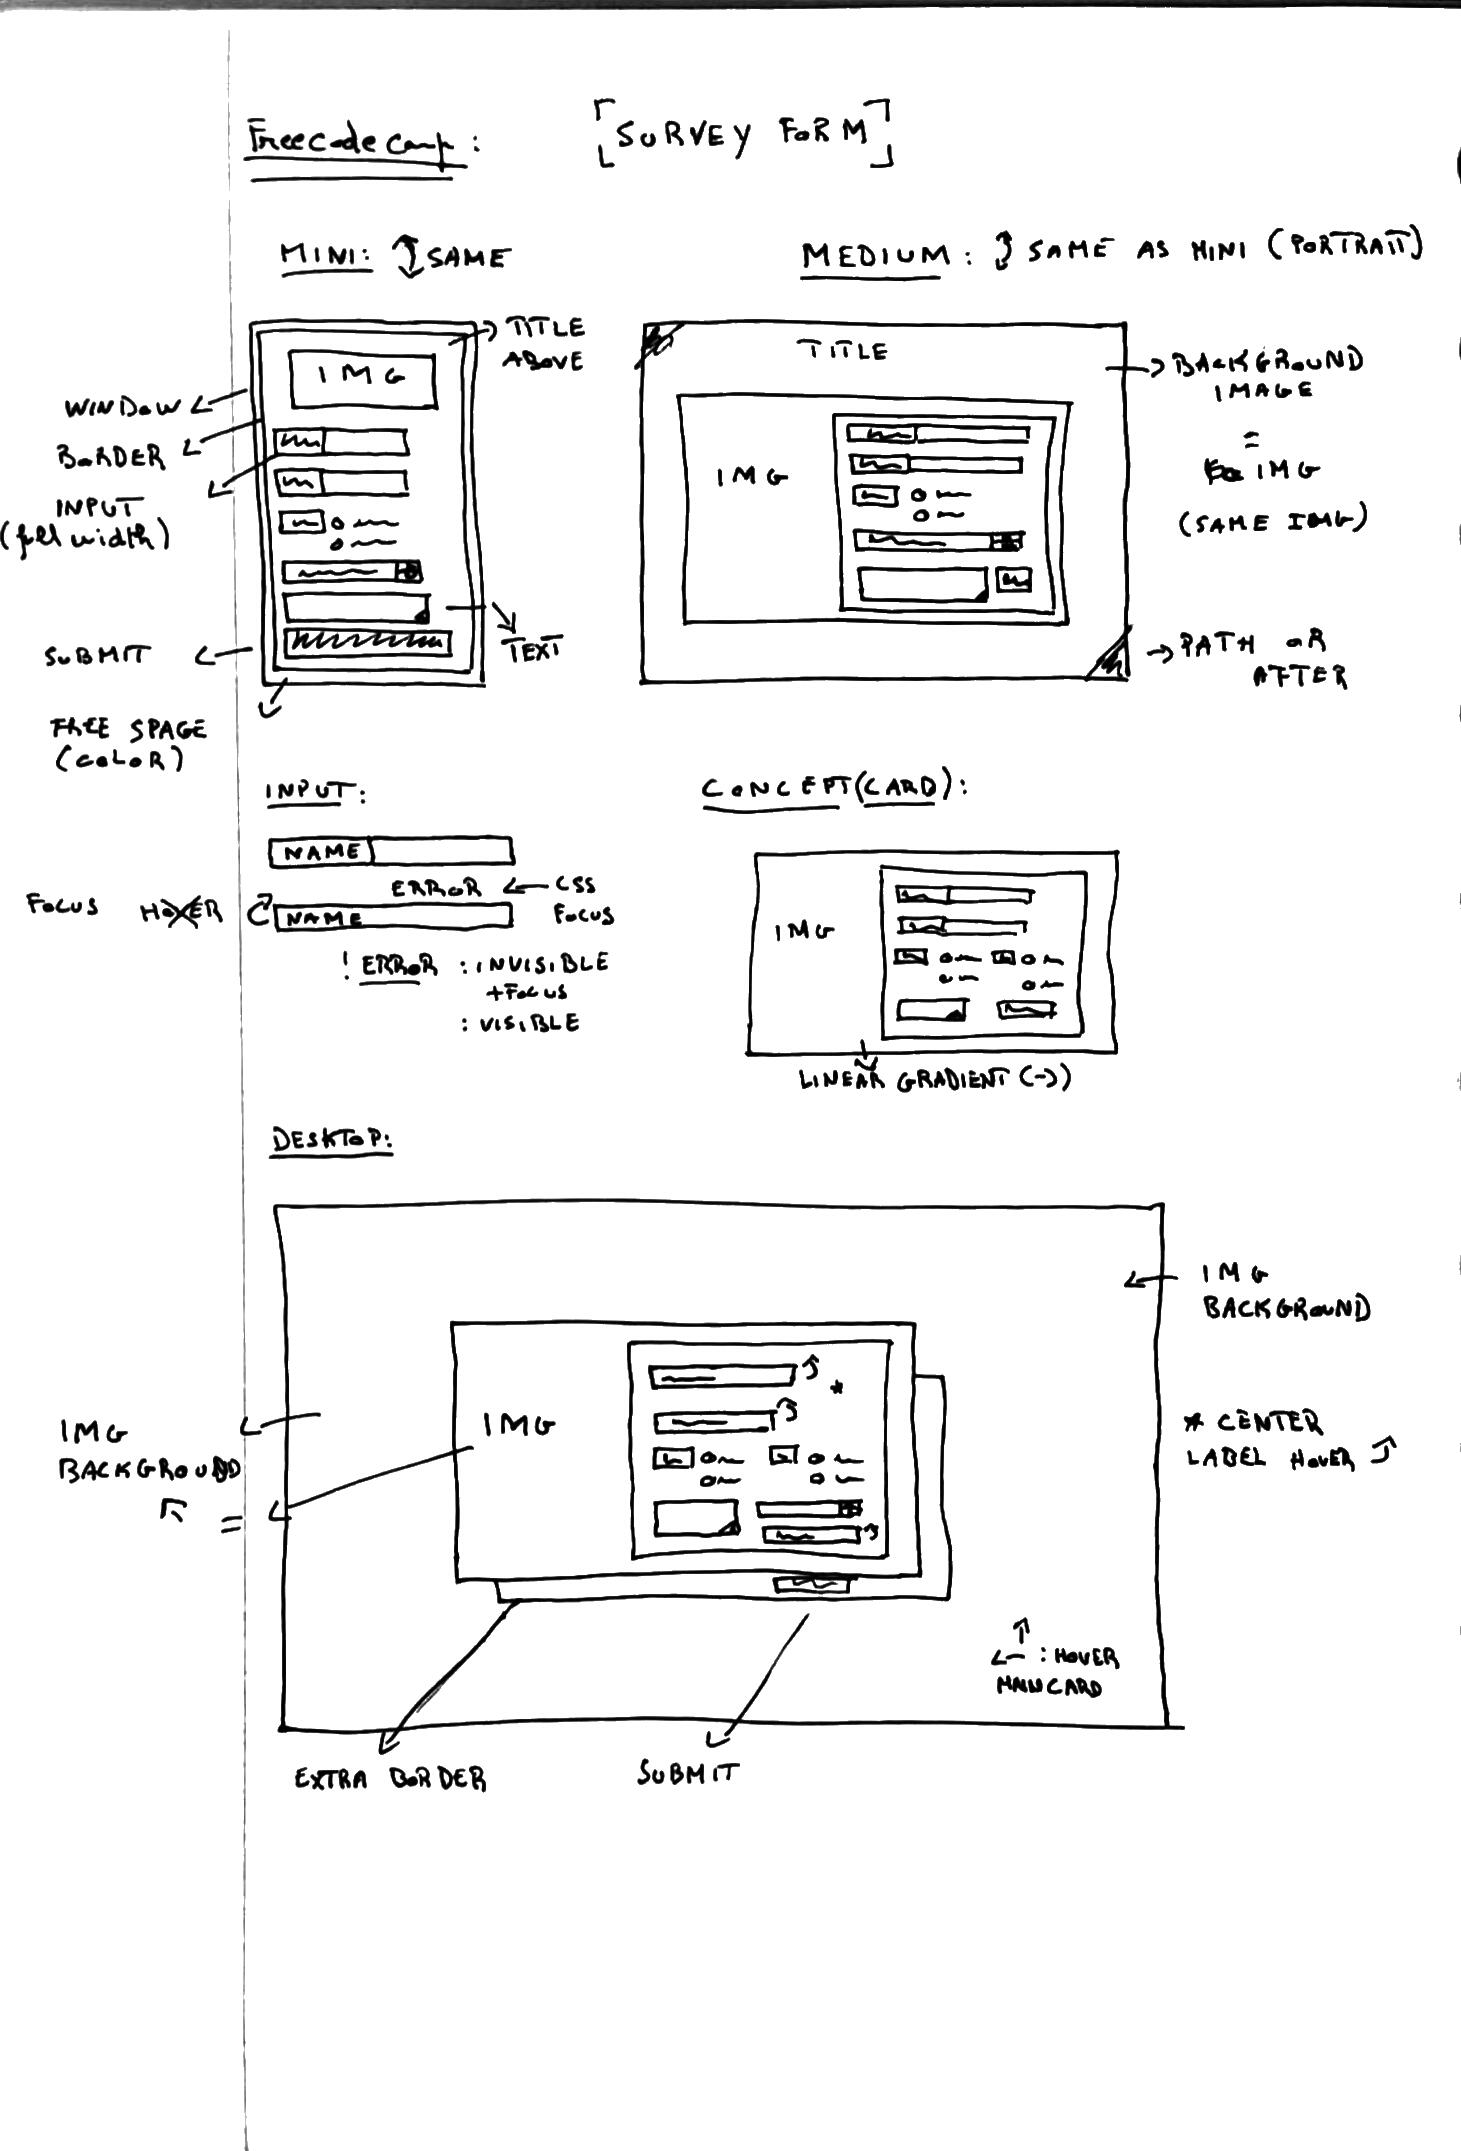 Freecodecamp : [SURVEY FORM]
MINI: SAME
MEDIUM : SAME AS MINI (PORTRAIT)
TITLE
ABOVE
IMG
WINDOW
BORDER
INPUT
(full width)
SUBMIT
FREE SPAGE
(COLOR)
TEXT
TITLE
IMG
BACKGROUND
IMAGE
=
IMG
(SAME IMG)
PATH OR
AFTER
INPUT:
NAME
ERROR ← CSS
FOCUS
FOCUS HOVER
NAME
! ERROR : INVISIBLE
+ FOCUS
: VISIBLE
CONCEPT (CARD):
IMG
LINEAR GRADIENT (→)
DESKTOP:
IMG
BACKGROUND
IMG
*
* CENTER
LABEL HOVER
IMG
BACKGROUND
=
: HOVER
MAIN CARD
EXTRA BORDER
SUBMIT